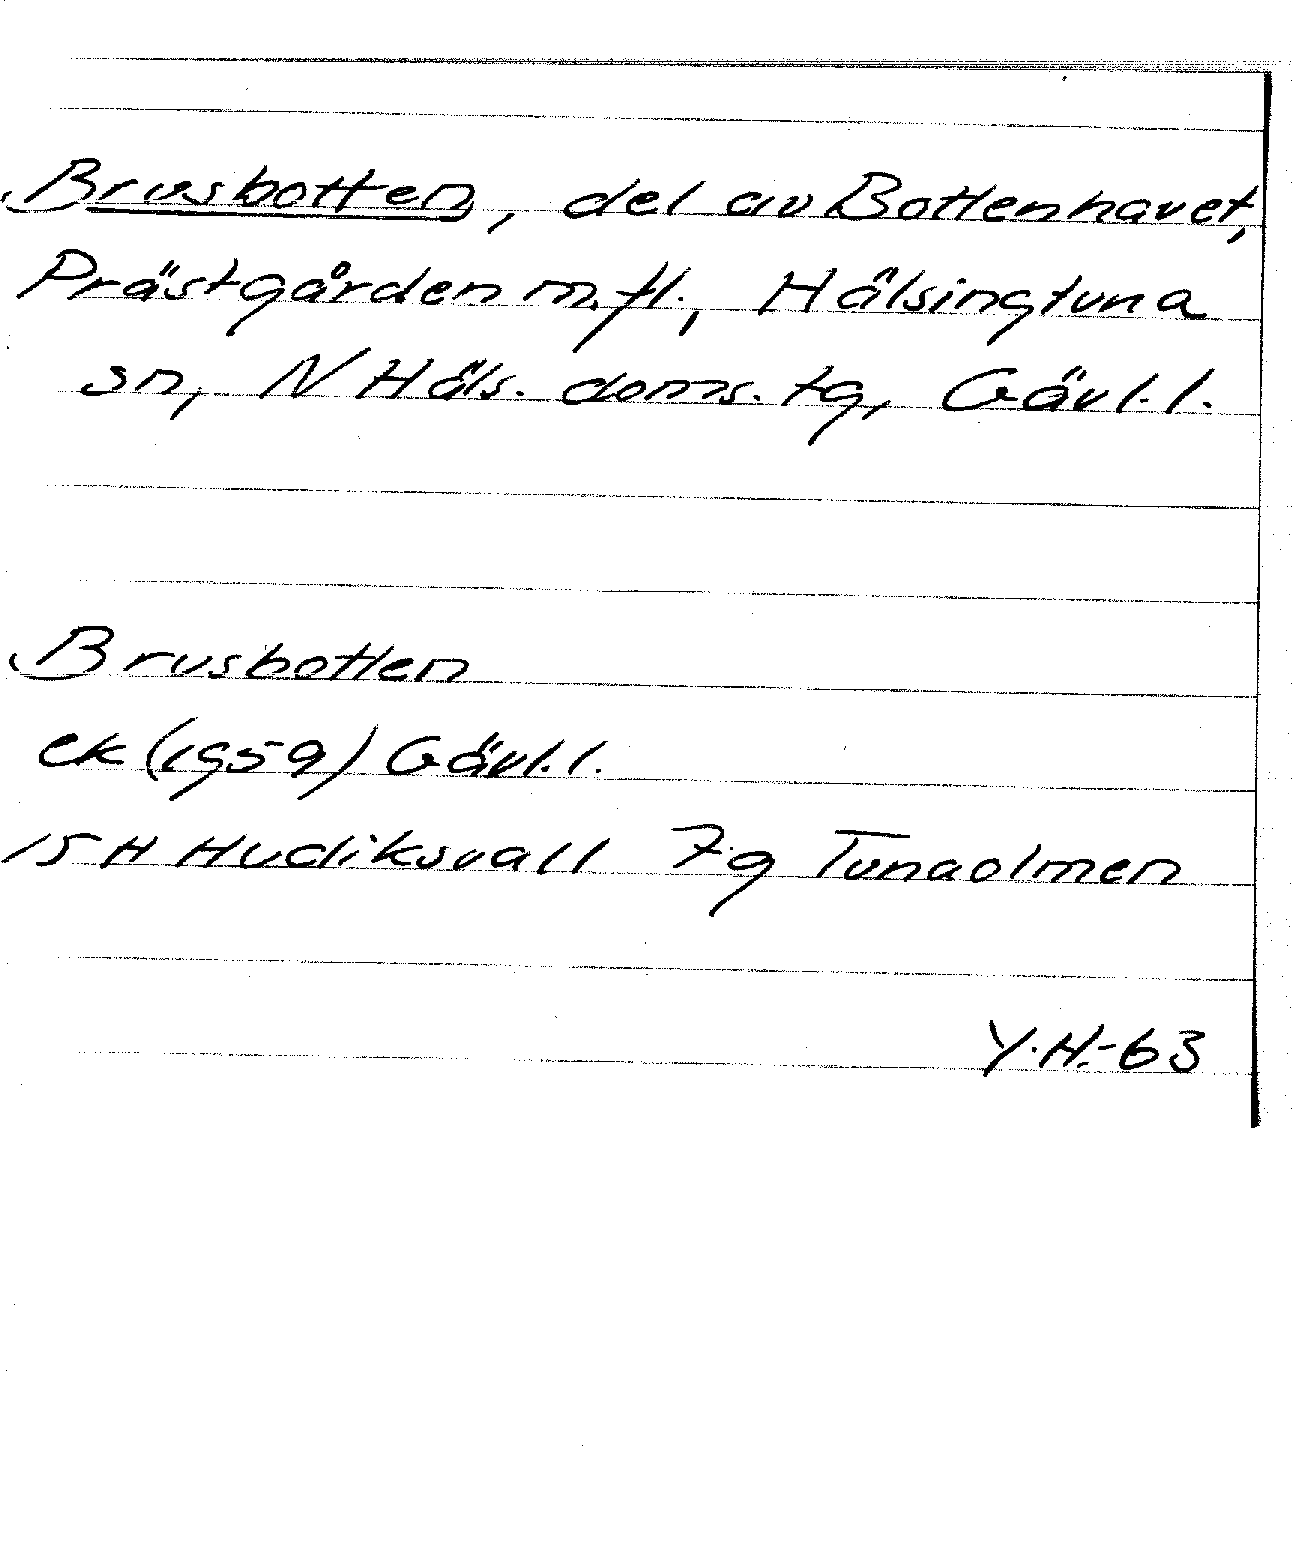 Brusbotten, del av Bottenhavet,
Prästgården m.fl., Hälsingtuna
sn, N Häls. doms. tg, Gävl. l.
Brusbotten
ek (1959) Gävl. l.
15 H Hudiksvall 7g Tunaolmen
Y.H.-63